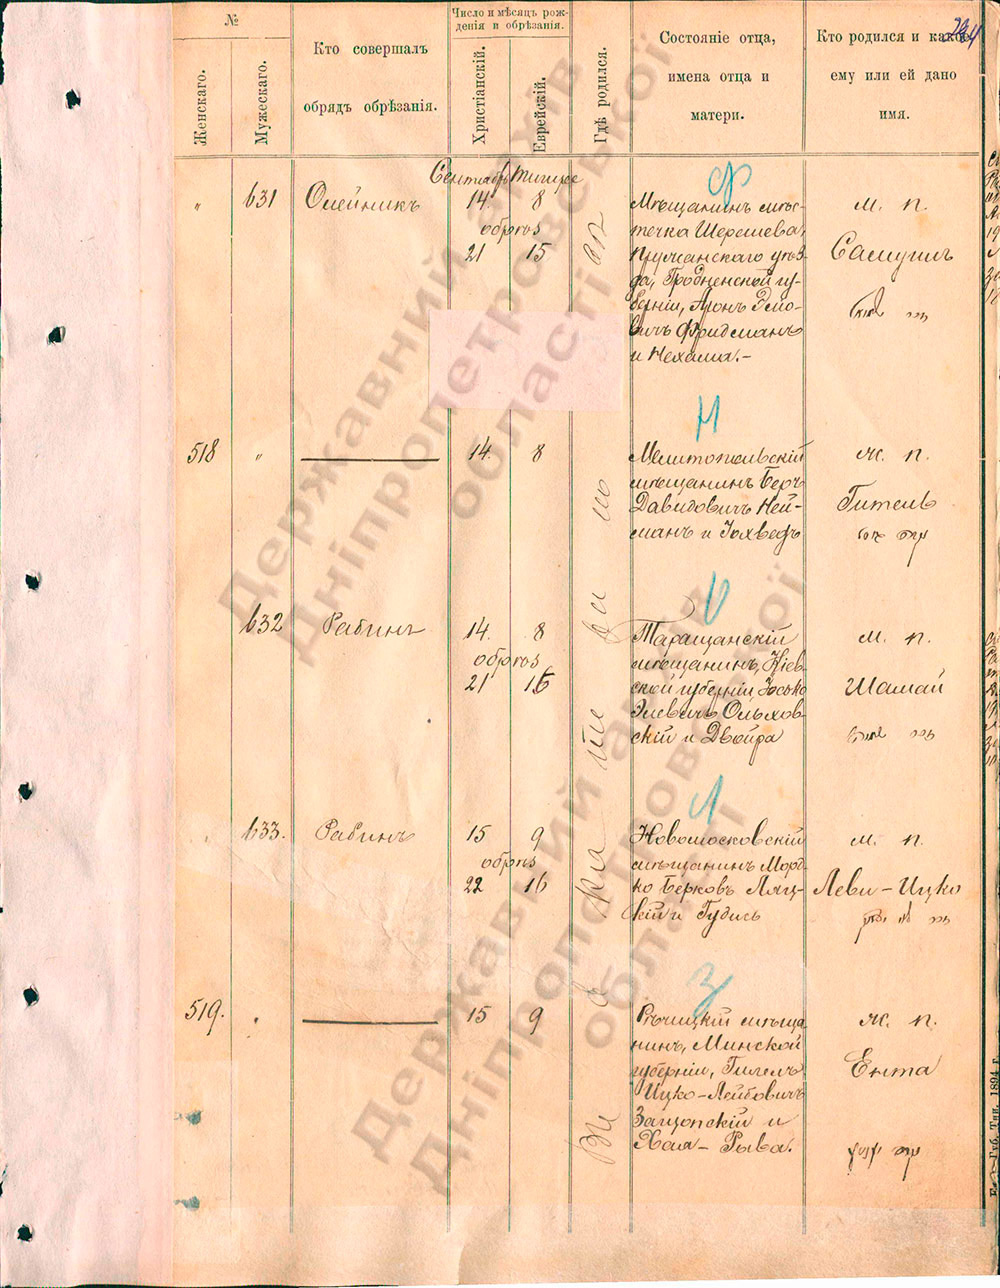 №
Женскаго.
Мужескаго.
Кто совершалъ
обрядъ обрѣзанія.
Число и мѣсяцъ рож-
денія и обрѣзанія.
Христіанскій.
Еврейскій.
Гдѣ родился.
Состояніе отца,
имена отца и
матери.
Кто родился и какое
ему или ей дано
имя.
Сентябрь Тишрее
" 631 Олейникъ 14 8
обрѣз
21 15
Ф
Мѣщанинъ мѣс-
течка Шерешева,
Пружанскаго уѣз-
да, Гродненской гу-
берніи, Аронъ
вичъ Фридманъ
и Нехама.-
м. п.
Самуилъ
518 " 14. 8
Н
Мелитопольскій
мѣщанинъ Беръ
Давидовичъ Ней-
манъ и Іохведъ
ж. п.
Гитель
632 Рабинъ 14. 8
обрѣз
21 16
О
Таращанскій
мѣщанинъ, Кіев-
ской губерніи, Іосько
Элевичъ Ольхов-
скій и Двойра
м. п.
Шамай
" 633. Рабинъ 15 9
обрѣз
22 16
Л
Новомосковскій
мѣщанинъ Морд-
ко Берковъ Ляц-
кій и Гудись
м. п.
Леви-Ицко
519. " 15 9
З
Рѣчицкій мѣща
нинъ, Минской
губерніи, Гилелъ
Ицко-Лейбовичъ
Защопскій и
Хая-Рыва.
ж. п.
Ента
Губ. Тип. 1894 г.
Державний архів
Дніпропетровської
області
Державний архів
Дніпропетровської
області